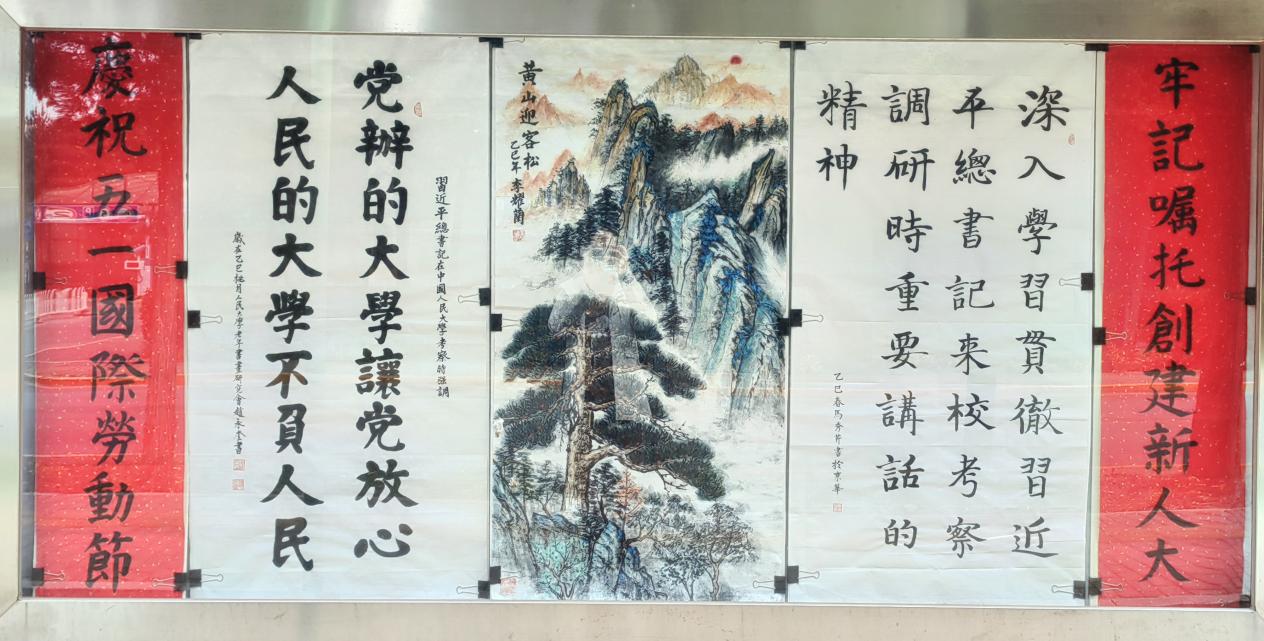 牢記嘱托創建新人大
深入學習貫徹習近
平總書記来校考察
調研時重要講話的
精神
乙巳春馬秀芹書於京華
黄山迎客松
乙巳年李耀蘭
習近平總書記在中國人民大學考察時强調
党辦的大學讓党放心
人民的大學不負人民
歲在乙巳桃月人民大學老年書畫研究會趙永奎書
慶祝五一國際勞動節